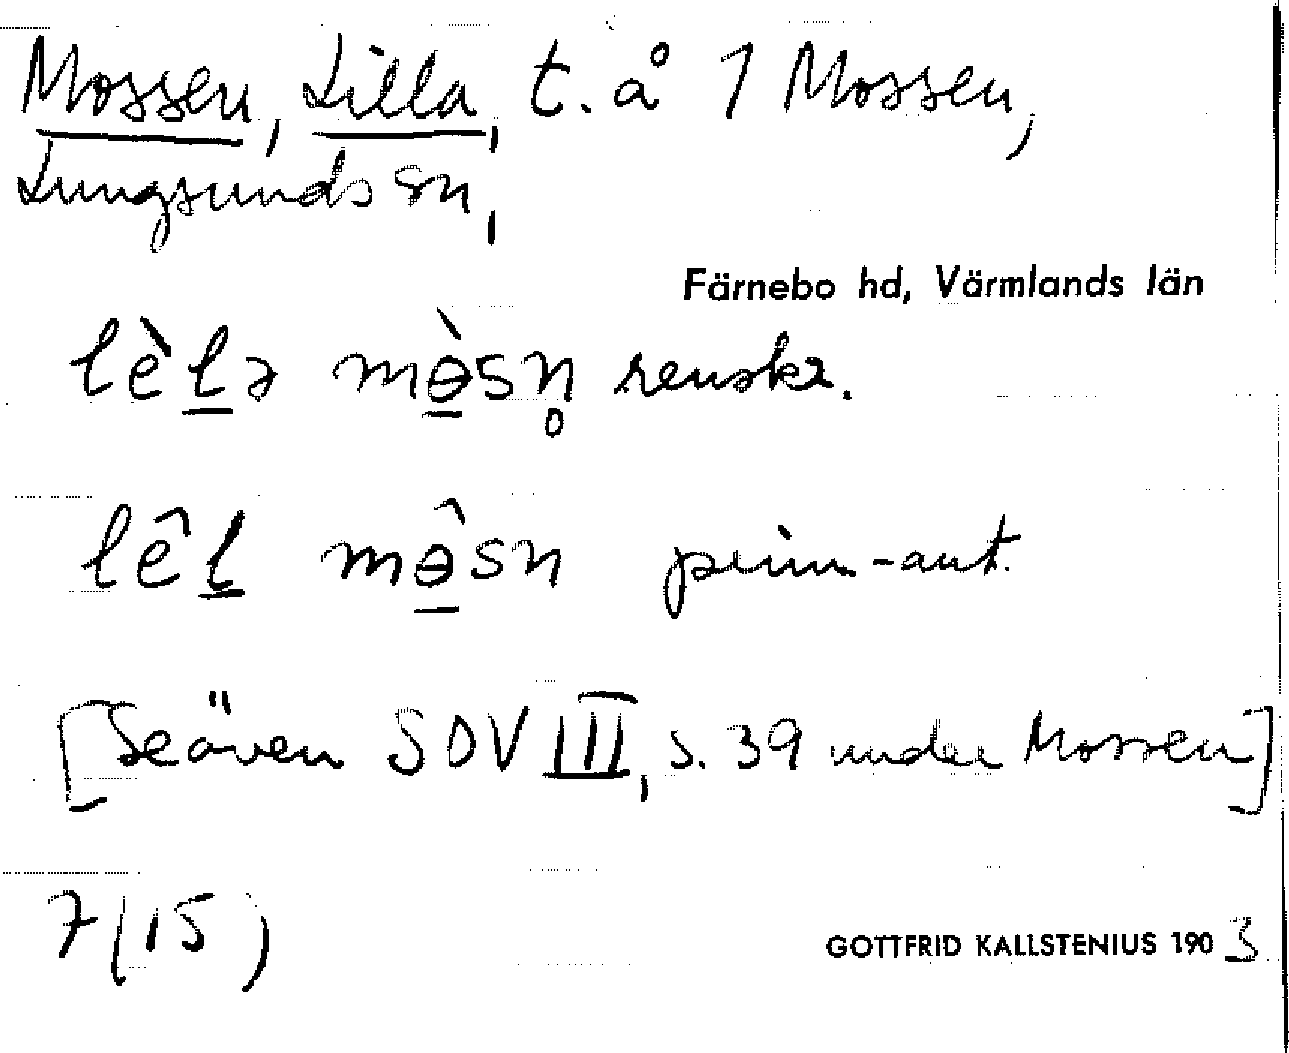 Mossen, Lilla, t. å 1 Mossen,
Lungsunds sn,
Färnebo hd, Värmlands län
lèl̠ə mɵ̠̀sn̥ renskr.
lêl̠ mɵ̠̂sn prim-ant.
[Se även SOV III, s. 39 under Mossen]
7(15)
GOTTFRID KALLSTENIUS 1903